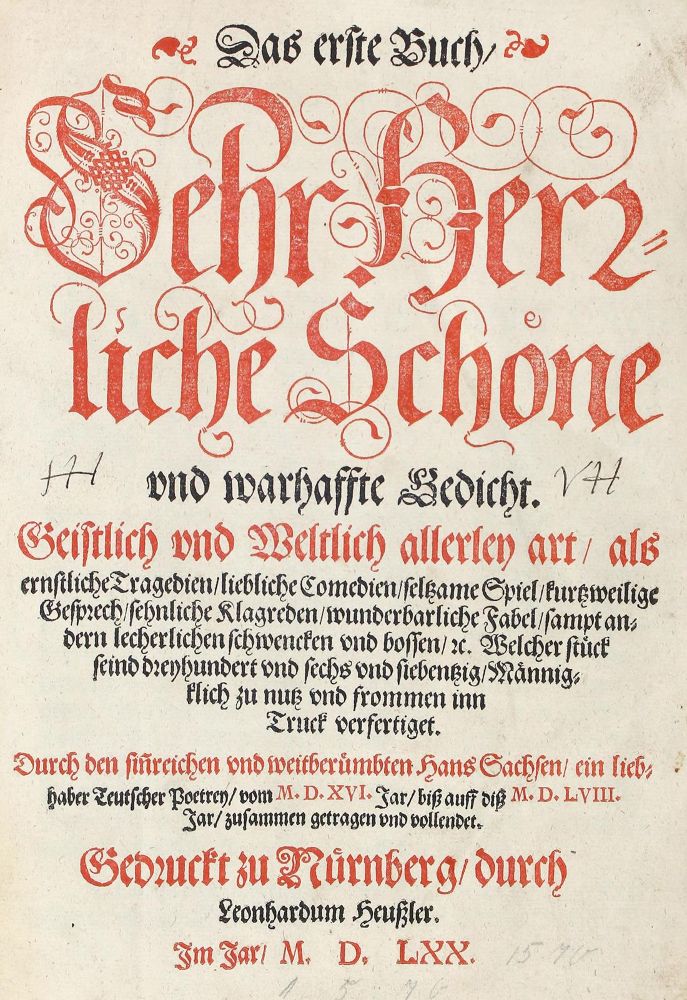 Das erſte Buch/
Sehr Herꝛ⸗
liche Schoͤne
vnd warhaffte Gedicht.
Geiſtlich vnd Weltlich allerley art/ als
ernſtliche Tragedien/ liebliche Comedien/ ſeltzame Spiel/ kurtzweilige
Geſprech/ ſehnliche Klagreden/ wunderbarliche Fabel/ ſampt an⸗
dern lecherlichen ſchwencken vnd boſſen/ ꝛc. Welcher ſtuͤck
ſeind dreyhundert vnd ſechs vnd ſiebentzig/ Maͤnnig⸗
klich zu nutz vnd frommen inn
Truck verfertiget.
Durch den ſiñreichen vnd weitberuͤmbten Hans Sachſen/ ein lieb⸗
haber Teutſcher Poetrey/ vom M. D. XVI. Jar/ biß auff diß M. D. LVIII.
Jar/ zuſammen getragen vnd vollendet.
Gedruckt zu Nuͤrnberg/ durch
Leonhardum Heußler.
Im Jar/ M. D. LXX. 15 70